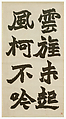 雲旌未起
風柯不吟